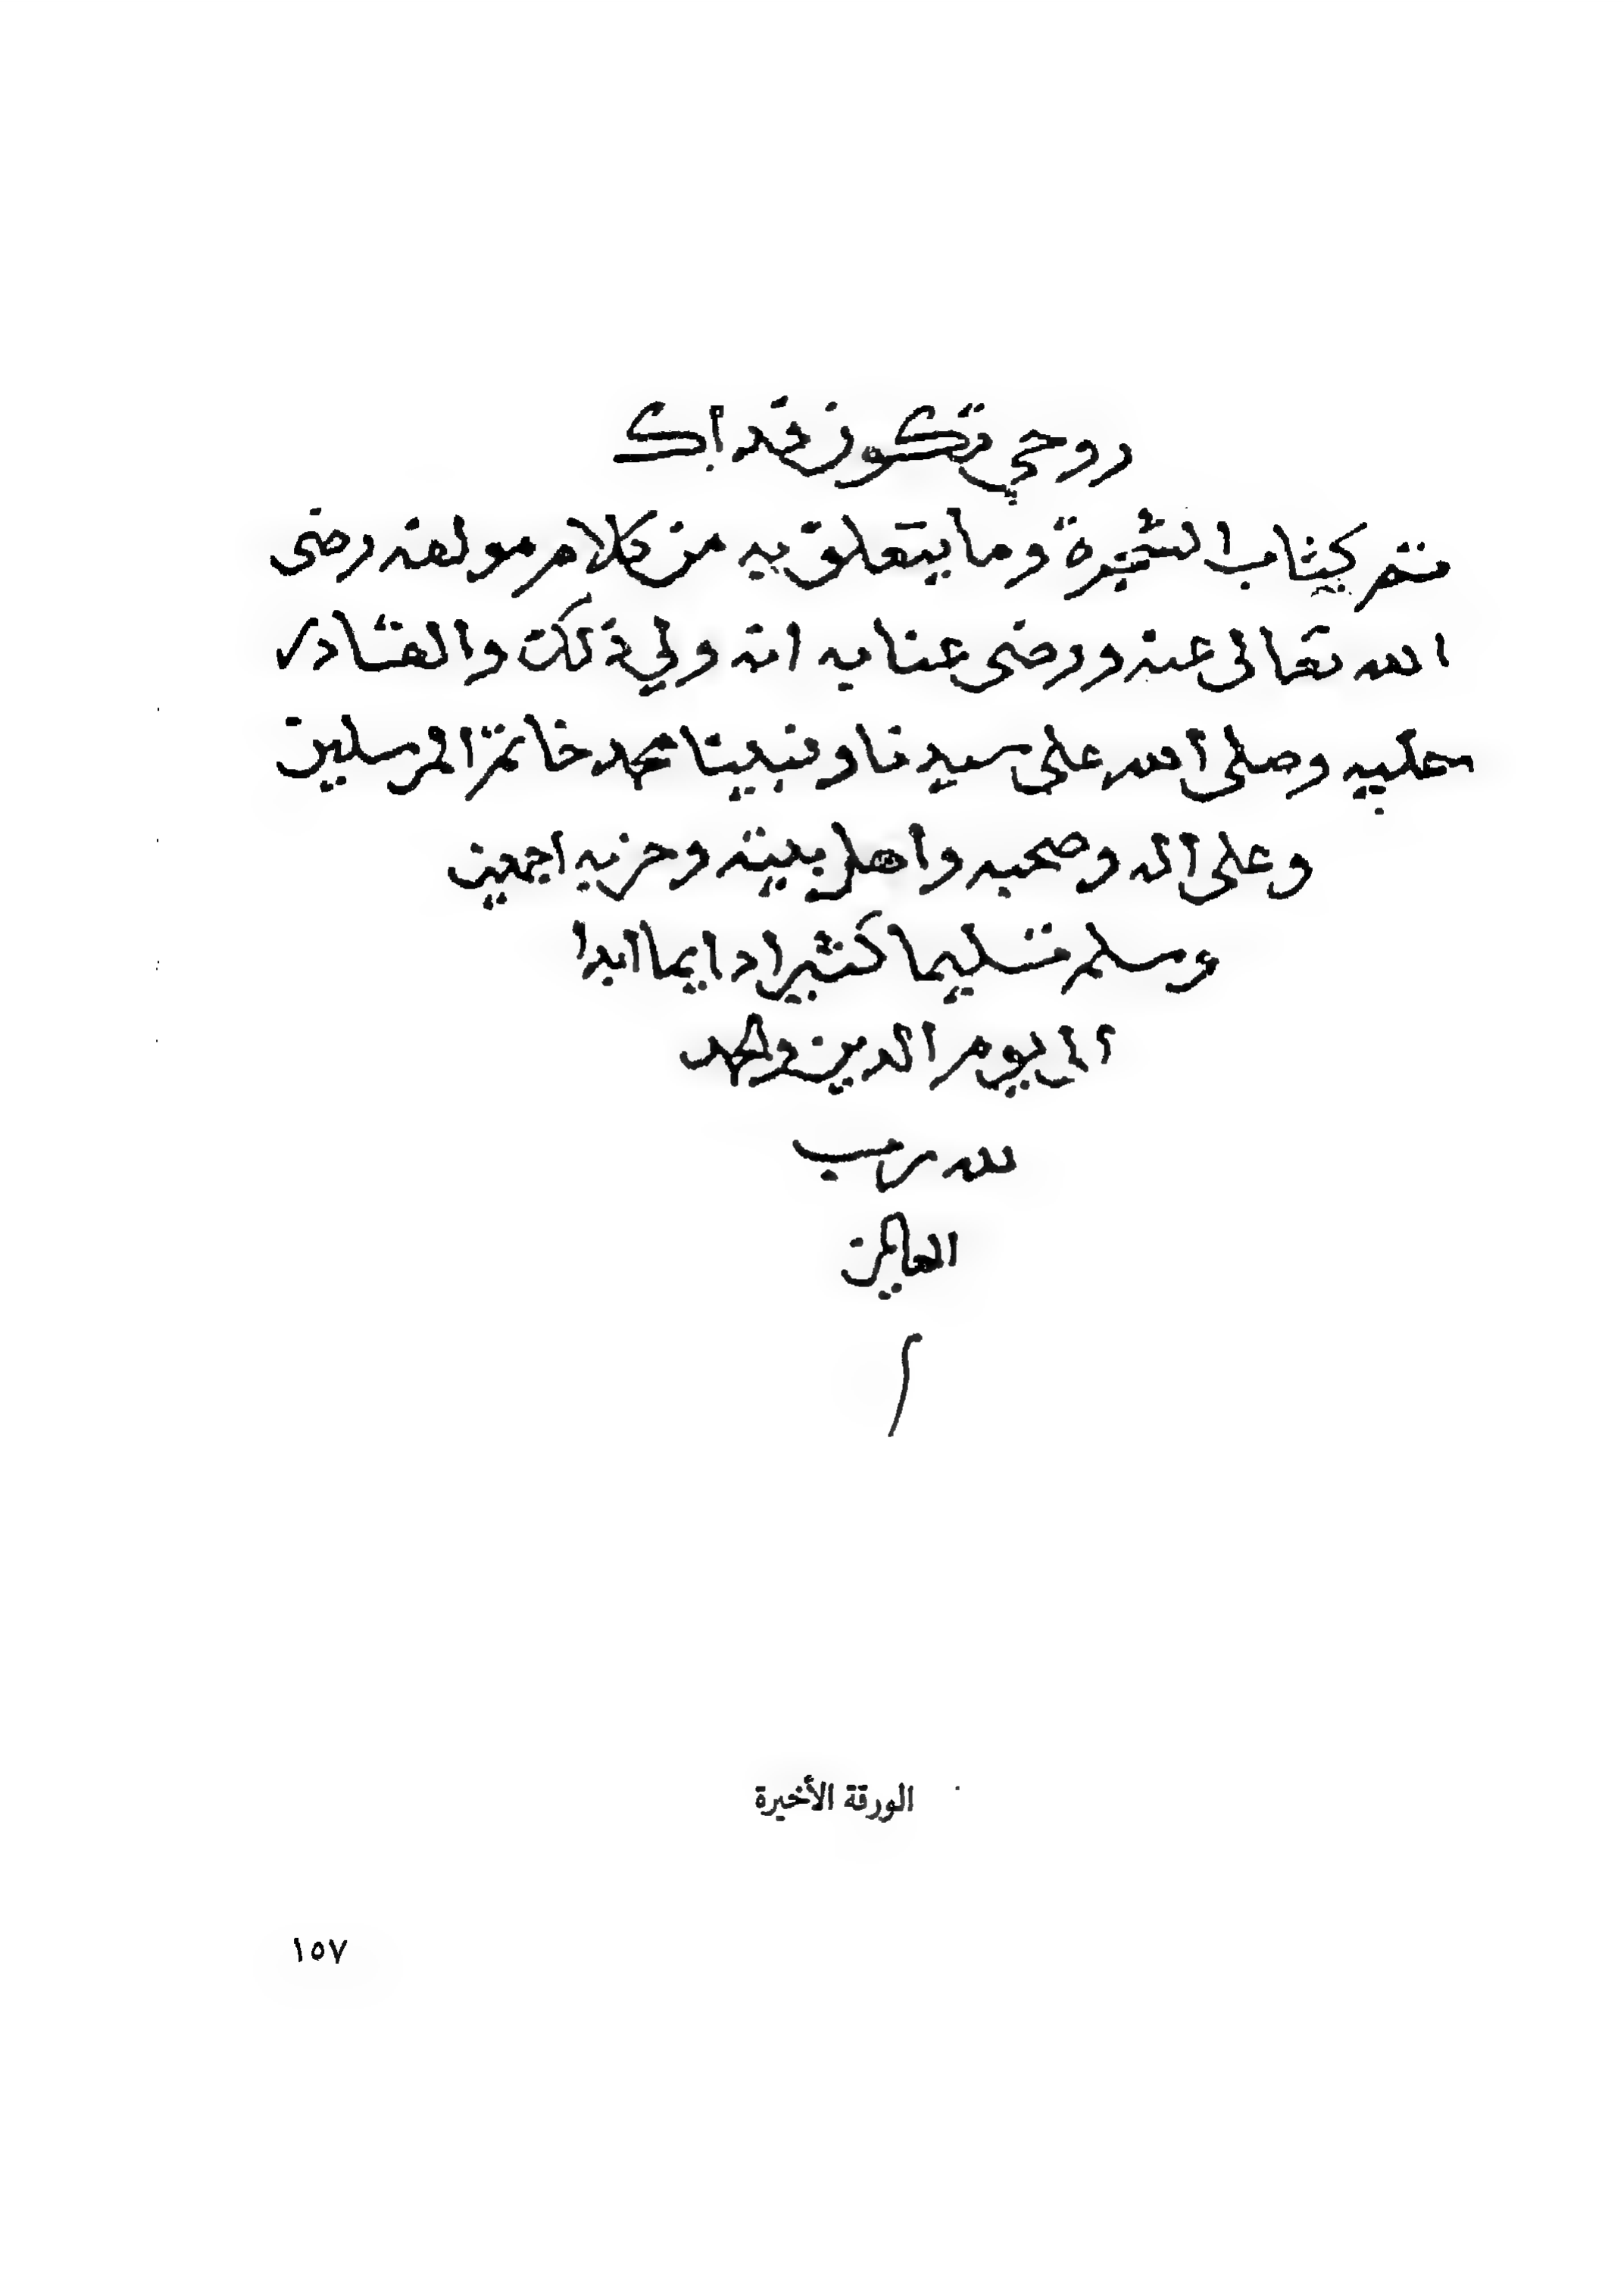 روحي تكون فداك
تم كتاب الشجرة وما يتعلق به من كلام مولفه رضى
الله تعالى عنه ورضى عنا به انه ولي ذلك والقادر
عليه وصلى الله على سيدنا ونبينا محمد خاتم المرسلين
وعلى آله وصحبه واهل بيته وحزبه اجمعين
وسلم تسليما كثيرا دايما ابدا
الى يوم الدين والحمد
لله رب
العالمين
م
الورقة الأخيرة
١٥٧